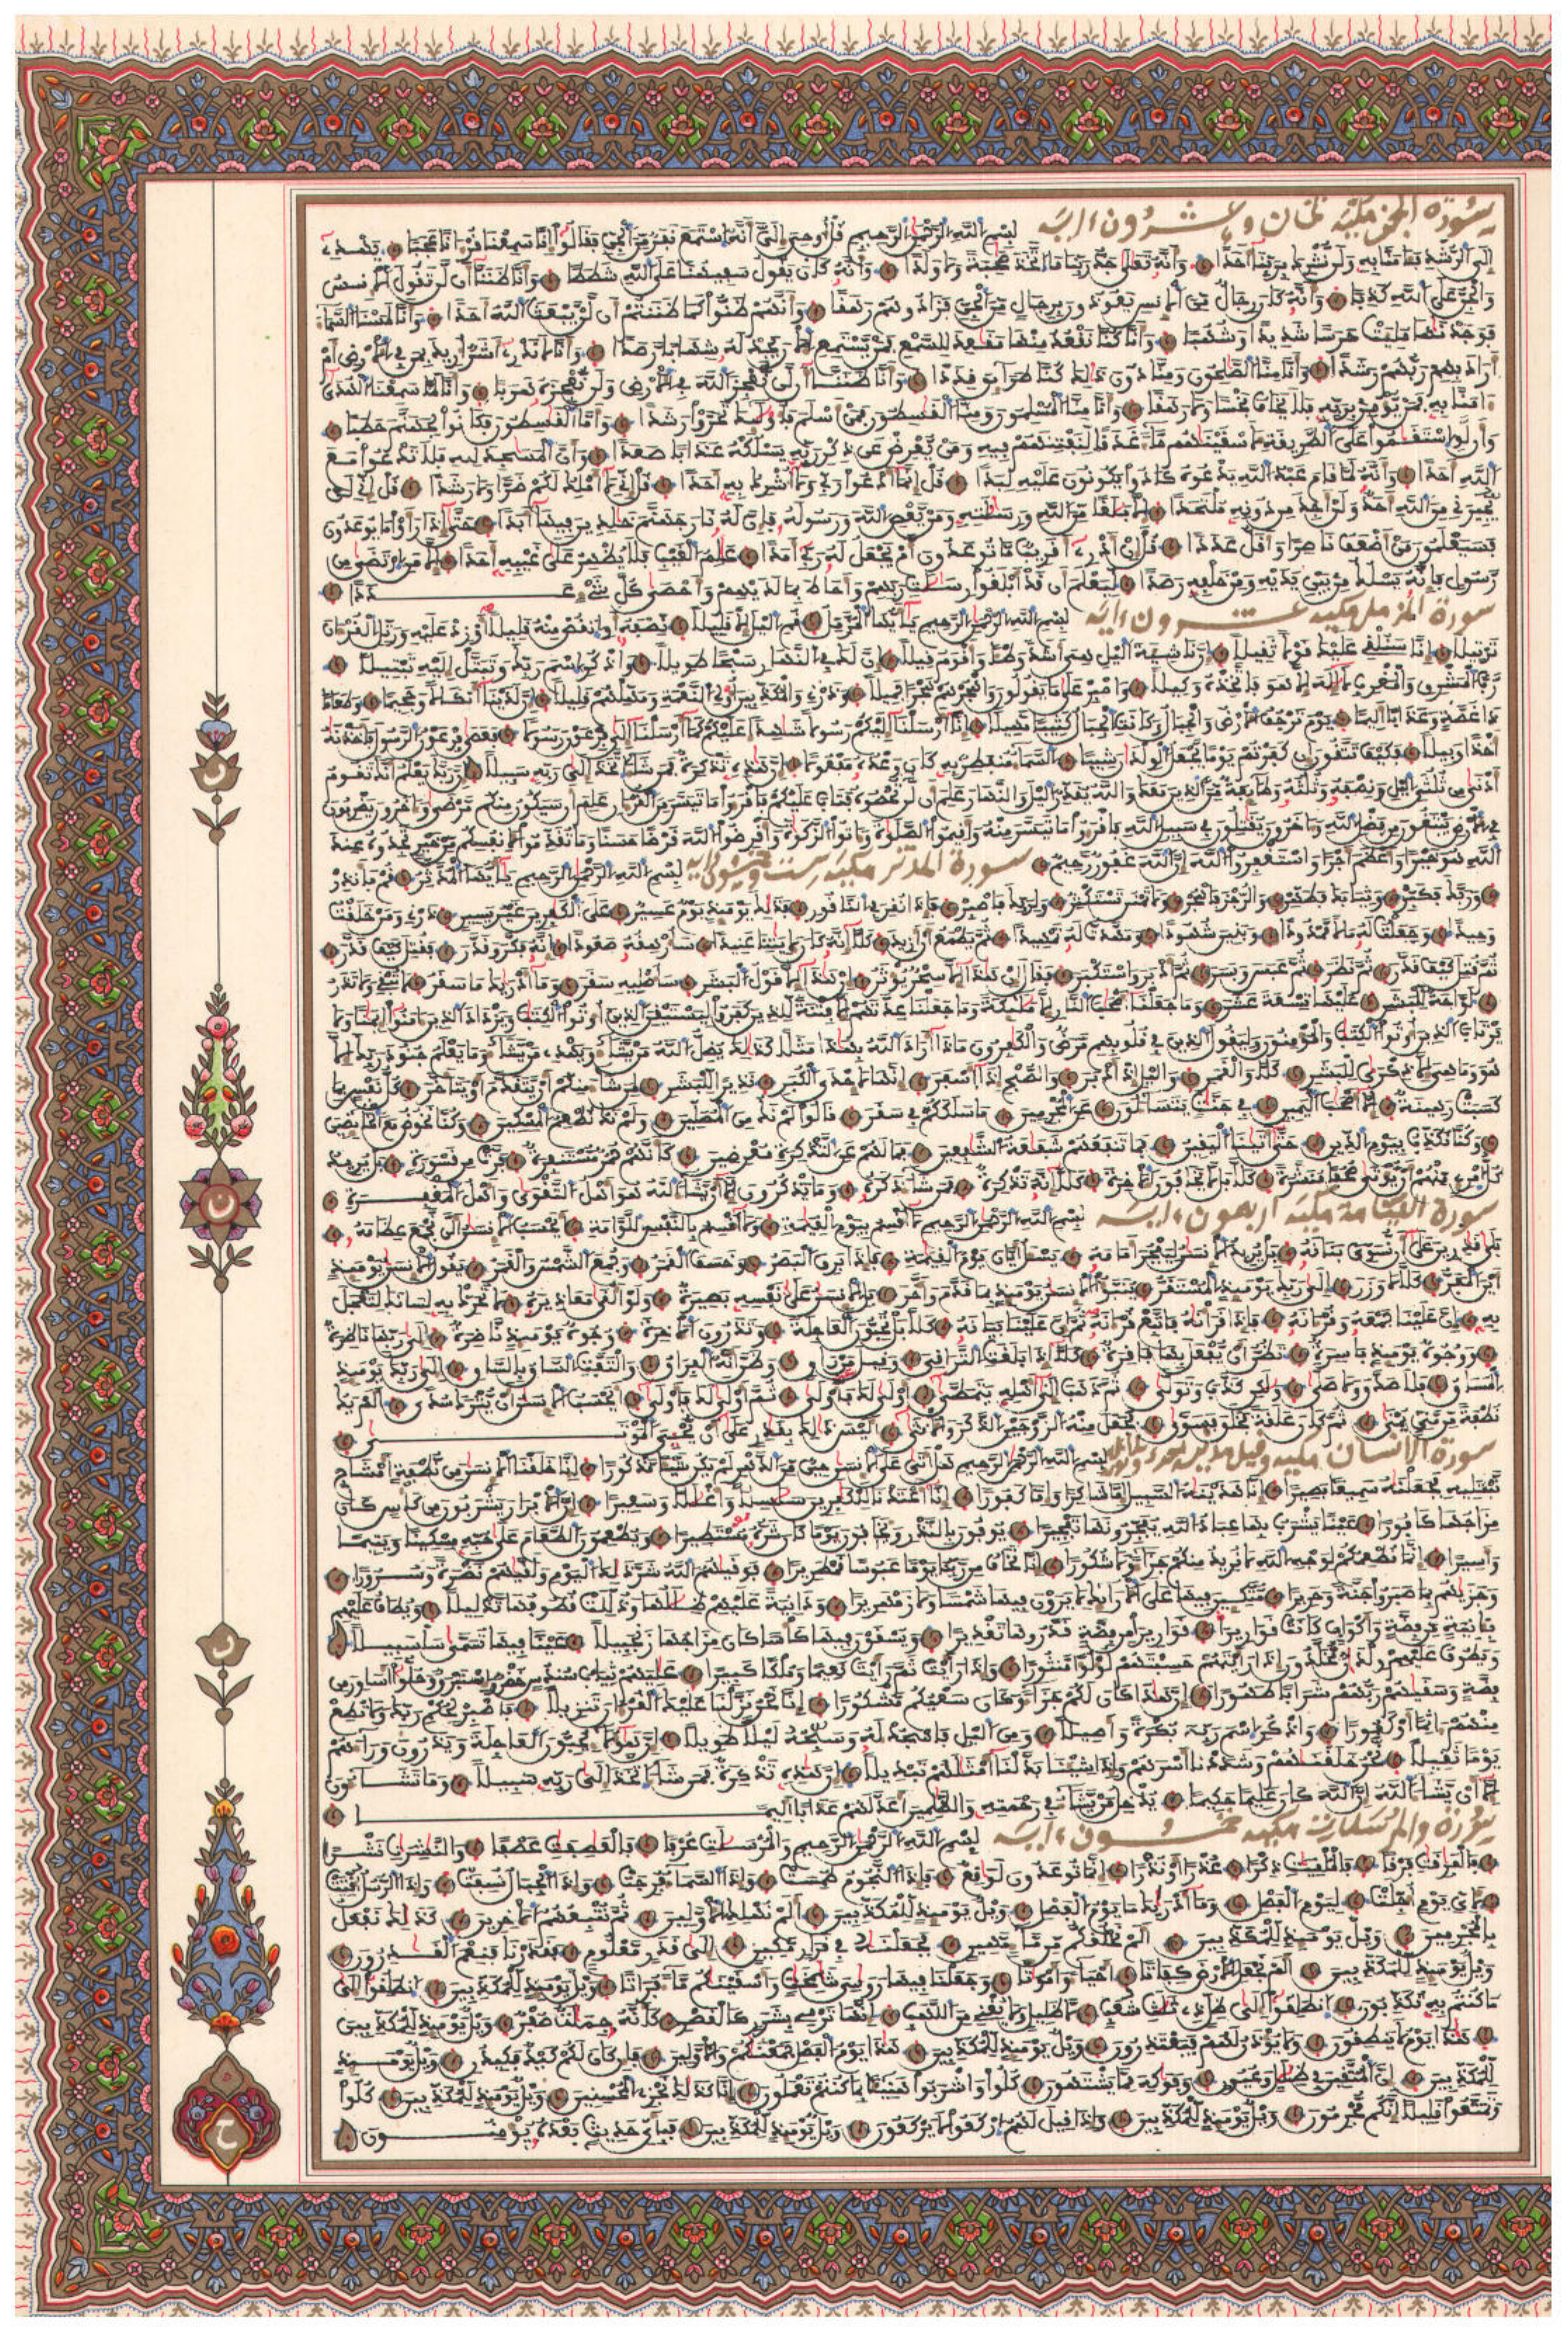 سورة الجن مكية ثمان وعشرون ءاية بسم الله الرحمن الرحيم قل أوحي إلي أنه استمع نفر من الجن فقالوا إنا سمعنا قرءانا عجبا يهدي
إلى الرشد فئامنا به ولن نشرك بربنا أحدا وإنه تعالى جد ربنا ما اتخذ صحبة ولا ولدا وإنه كان يقول سفيهنا على الله شططا وإنا ظننا أن لن تقول الإنس
والجن على الله كذبا وإنه كان رجال من الإنس يعوذون برجال من الجن فزادوهم رهقا وإنهم ظنوا كما ظننتم أن لن يبعث الله أحدا وإنا لمسنا السماء
فوجدنها ملئت حرسا شديدا وشهبا وإنا كنا نقعد منها مقعد للسمع فمن يستمع الان يجد له شهابا رصدا وإنا لا ندري أشر أريد بمن في الأرض أم
أراد بهم ربهم رشدا وإنا منا الصلحون ومنا دون ذلك كنا طرائق قددا وإنا ظننا أن لن نعجز الله في الأرض ولن نعجزه هربا وإنا لما سمعنا الهدى
ءامنا به فمن يومن بربه فلا يخاف بخسا ولا رهقا وإنا منا المسلمون ومنا القسطون فمن أسلم فأولئك تحروا رشدا وأما القسطون فكانوا لجهنم حطبا
وأن لو استقموا على الطريقة لأسقينهم ماء غدقا لنفتنهم فيه ومن يعرض عن ذكر ربه نسلكه عذابا صعدا وأن المسجد لله فلا تدعوا مع
الله أحدا وإنه لما قام عبد الله يدعوه كادوا يكونون عليه لبدا قل إنما أدعوا ربي ولا أشرك به أحدا قل إني لا أملك لكم ضرا ولا رشدا قل إني لن
يجيرني من الله أحد ولن أجد من دونه ملتحدا إلا بلغا من الله ورسلته ومن يعص الله ورسوله فإن له نار جهنم خلدين فيها أبدا حتى إذا رأوا ما يوعدون
فسيعلمون من أضعف ناصرا وأقل عددا قل إن أدري أقريب ما توعدون أم يجعل له ربي أمدا علم الغيب فلا يظهر على غيبه أحدا إلا من ارتضى من
رسول فإنه يسلك من بين يديه ومن خلفه رصدا ليعلم أن قد أبلغوا رسلت ربهم وأحاط بما لديهم وأحصى كل شيء عددا
سورة المزمل مكية عشرون ءاية بسم الله الرحمن الرحيم يأيها المزمل قم اليل إلا قليلا نصفه أو انقص منه قليلا أو زد عليه ورتل القرءان
ترتيلا إنا سنلقي عليك قولا ثقيلا إن ناشئة اليل هي أشد وطئا وأقوم قيلا إن لك في النهار سبحا طويلا واذكر اسم ربك وتبتل إليه تبتيلا
رب المشرق والمغرب لا إله إلا هو فاتخذه وكيلا واصبر على ما يقولون واهجرهم هجرا جميلا وذرني والمكذبين أولي النعمة ومهلهم قليلا إن لدينا أنكالا وجحيما وطعاما
ذا غصة وعذابا أليما يوم ترجف الأرض والجبال وكانت الجبال كثيبا مهيلا إنا أرسلنا إليكم رسولا شهدا عليكم كما أرسلنا إلى فرعون رسولا فعصى فرعون الرسول فأخذنه
أخذا وبيلا فكيف تتقون إن كفرتم يوما يجعل الولدن شيبا السماء منفطر به كان وعده مفعولا إن هذه تذكرة فمن شاء اتخذ إلى ربه سبيلا إن ربك يعلم أنك تقوم
أدنى من ثلثي اليل ونصفه وثلثه وطائفة من الذين معك والله يقدر اليل والنهار علم أن لن تحصوه فتاب عليكم فاقرءوا ما تيسر من القرءان علم أن سيكون منكم مرضى وءاخرون يضربون
في الأرض يبتغون من فضل الله وءاخرون يقتلون في سبيل الله فاقرءوا ما تيسر منه وأقيموا الصلوة وءاتوا الزكوة وأقرضوا الله قرضا حسنا وما تقدموا لأنفسكم من خير تجدوه عند
الله هو خيرا وأعظم أجرا واستغفروا الله إن الله غفور رحيم سورة المدثر مكية ست وخمسون ءاية بسم الله الرحمن الرحيم يأيها المدثر قم فأنذر
وربك فكبر وثيابك فطهر والرجز فاهجر ولا تمنن تستكثر ولربك فاصبر فإذا نقر في الناقور فذلك يومئذ يوم عسير على الكفرين غير يسير ذرني ومن خلقت
وحيدا وجعلت له مالا ممدودا وبنين شهودا ومهدت له تمهيدا ثم يطمع أن أزيد كلا إنه كان لأيتنا عنيدا سأرهقه صعودا إنه فكر وقدر فقتل كيف قدر
ثم قتل كيف قدر ثم نظر ثم عبس وبسر ثم أدبر واستكبر فقال إن هذا إلا سحر يوثر إن هذا إلا قول البشر سأصليه سقر وما أدريك ما سقر لا تبقي ولا تذر
لواحة للبشر عليها تسعة عشر وما جعلنا أصحب النار إلا ملئكة وما جعلنا عدتهم إلا فتنة للذين كفروا ليستيقن الذين أوتوا الكتب ويزداد الذين ءامنوا إيمنا ولا
يرتاب الذين أوتوا الكتب والمومنون وليقول الذين في قلوبهم مرض والكفرون ماذا أراد الله بهذا مثلا كذلك يضل الله من يشاء ويهدي من يشاء وما يعلم جنود ربك إلا
هو وما هي إلا ذكرى للبشر كلا والقمر واليل إذ أدبر والصبح إذا أسفر إنها لإحدى الكبر نذيرا للبشر لمن شاء منكم أن يتقدم أو يتأخر كل نفس بما
كسبت رهينة إلا أصحب اليمين في جنت يتساءلون عن المجرمين ما سلككم في سقر قالوا لم نك من المصلين ولم نك نطعم المسكين وكنا نخوض مع الخائضين
وكنا نكذب بيوم الدين حتى أتينا اليقين فما تنفعهم شفعة الشفعين فما لهم عن التذكرة معرضين كأنهم حمر مستنفرة فرت من قسورة بل يريد
كل امرئ منهم أن يوتى صحفا منشرة كلا بل لا يخافون الأخرة كلا إنه تذكرة فمن شاء ذكره وما تذكرون إلا أن يشاء الله هو أهل التقوى وأهل المغفرة
سورة القيامة مكية أربعون ءاية بسم الله الرحمن الرحيم لا أقسم بيوم القيمة ولا أقسم بالنفس اللوامة أيحسب الإنسن ألن نجمع عظامه
بلى قدرين على أن نسوي بنانه بل يريد الإنسن ليفجر أمامه يسئل أيان يوم القيمة فإذا برق البصر وخسف القمر وجمع الشمس والقمر يقول الإنسن يومئذ
أين المفر كلا لا وزر إلى ربك يومئذ المستقر ينبؤا الإنسن يومئذ بما قدم وأخر بل الإنسن على نفسه بصيرة ولو ألقى معاذيره لا تحرك به لسانك لتعجل
به إن علينا جمعه وقرءانه فإذا قرأنه فاتبع قرءانه ثم إن علينا بيانه كلا بل تحبون العاجلة وتذرون الأخرة وجوه يومئذ ناضرة إلى ربها ناظرة
ووجوه يومئذ باسرة تظن أن يفعل بها فاقرة كلا إذا بلغت التراقي وقيل من راق وظن أنه الفراق والتفت الساق بالساق إلى ربك يومئذ
المساق فلا صدق ولا صلى ولكن كذب وتولى ثم ذهب إلى أهله يتمطى أولى لك فأولى ثم أولى لك فأولى أيحسب الإنسن أن يترك سدى ألم يك
نطفة من مني تمنى ثم كان علقة فخلق فسوى فجعل منه الزوجين الذكر والأنثى أليس ذلك بقدر على أن يحيي الموتى
سورة الإنسان مكية وقيل مدنية احدى وثلاثون بسم الله الرحمن الرحيم هل أتى على الإنسن حين من الدهر لم يكن شيئا مذكورا إنا خلقنا الإنسن من نطفة أمشاج
نبتليه فجعلنه سميعا بصيرا إنا هدينه السبيل إما شاكرا وإما كفورا إنا أعتدنا للكفرين سلسلا وأغللا وسعيرا إن الأبرار يشربون من كأس كان
مزاجها كافورا عينا يشرب بها عباد الله يفجرونها تفجيرا يوفون بالنذر ويخافون يوما كان شره مستطيرا ويطعمون الطعام على حبه مسكينا ويتيما
وأسيرا إنما نطعمكم لوجه الله لا نريد منكم جزاء ولا شكورا إنا نخاف من ربنا يوما عبوسا قمطريرا فوقيهم الله شر ذلك اليوم ولقيهم نضرة وسرورا
وجزيهم بما صبروا جنة وحريرا متكئين فيها على الأرائك لا يرون فيها شمسا ولا زمهريرا ودانية عليهم ظللها وذللت قطوفها تذليلا ويطاف عليهم
بئانية من فضة وأكواب كانت قواريرا قواريرا من فضة قدروها تقديرا ويسقون فيها كأسا كان مزاجها زنجبيلا عينا فيها تسمى سلسبيلا
ويطوف عليهم ولدن مخلدون إذا رأيتهم حسبتهم لؤلؤا منثورا وإذا رأيت ثم رأيت نعيما وملكا كبيرا عليهم ثياب سندس خضر وإستبرق وحلوا أساور من
فضة وسقيهم ربهم شرابا طهورا إن هذا كان لكم جزاء وكان سعيكم مشكورا إنا نحن نزلنا عليك القرءان تنزيلا فاصبر لحكم ربك ولا تطع
منهم ءاثما أو كفورا واذكر اسم ربك بكرة وأصيلا ومن اليل فاسجد له وسبحه ليلا طويلا إن هؤلاء يحبون العاجلة ويذرون وراءهم
يوما ثقيلا نحن خلقنهم وشددنا أسرهم وإذا شئنا بدلنا أمثلهم تبديلا إن هذه تذكرة فمن شاء اتخذ إلى ربه سبيلا وما تشاءون
إلا أن يشاء الله إن الله كان عليما حكيما يدخل من يشاء في رحمته والظلمين أعد لهم عذابا أليما
سورة والمرسلات مكية خمسون ءاية بسم الله الرحمن الرحيم والمرسلت عرفا فالعصفت عصفا والنشرت نشرا
فالفرقت فرقا فالملقيت ذكرا عذرا أو نذرا إنما توعدون لواقع فإذا النجوم طمست وإذا السماء فرجت وإذا الجبال نسفت وإذا الرسل أقتت
لأي يوم أجلت ليوم الفصل وما أدريك ما يوم الفصل ويل يومئذ للمكذبين ألم نهلك الأولين ثم نتبعهم الأخرين كذلك نفعل
بالمجرمين ويل يومئذ للمكذبين ألم نخلقكم من ماء مهين فجعلنه في قرار مكين إلى قدر معلوم فقدرنا فنعم القدرون
ويل يومئذ للمكذبين ألم نجعل الأرض كفاتا أحياء وأموتا وجعلنا فيها روسي شمخت وأسقينكم ماء فراتا ويل يومئذ للمكذبين انطلقوا إلى
ما كنتم به تكذبون انطلقوا إلى ظل ذي ثلث شعب لا ظليل ولا يغني من اللهب إنها ترمي بشرر كالقصر كأنه جملت صفر ويل يومئذ للمكذبين
هذا يوم لا ينطقون ولا يوذن لهم فيعتذرون ويل يومئذ للمكذبين هذا يوم الفصل جمعنكم والأولين فإن كان لكم كيد فكيدون ويل يومئذ
للمكذبين إن المتقين في ظلل وعيون وفوكه مما يشتهون كلوا واشربوا هنيئا بما كنتم تعملون إنا كذلك نجزي المحسنين ويل يومئذ للمكذبين كلوا
وتمتعوا قليلا إنكم مجرمون ويل يومئذ للمكذبين وإذا قيل لهم اركعوا لا يركعون ويل يومئذ للمكذبين فبأي حديث بعده يومنون
ن
ن
ن
ح